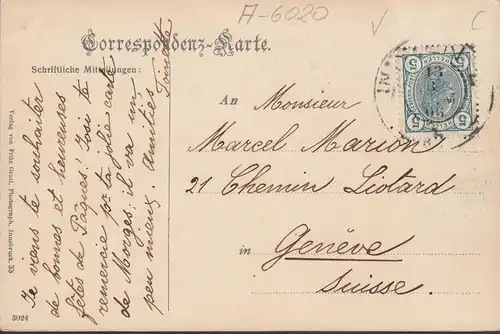 A-6020
Correspondenz-Karte.
Schriftliche Mitteilungen:
Je viens te souhaiter
de bonnes et heureuses
fêtes de Pâques! Sosi te
remercie pr ta jolie carte
de Morges; il va un
peu mieux. Amitiés
An
Monsieur
Marcel Marion
21 Chemin Liotard
in
Genève
Suisse.
5
5
5
5
Verlag von Fritz Gratl, Photograph, Innsbruck 35
3024